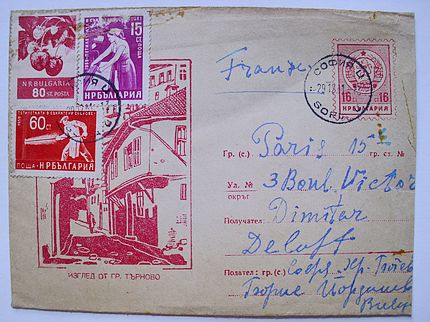 N.R.BULGARIA
80 ST. POSTA
15
СТ.
НРБЪЛГАРИЯ
60 СТ.
ПОЩА НРБЪЛГАРИЯ
СОФИЯ Ц
SOFIA
16 16
НРБЪЛГАРИЯ
France
Гр. (с.) Paris 15e гр. ст. №
Ул. № 3 Boul. Victor
окръг
Получател: Dimiter
Deloff
Подател: гр. (с.) София
Георги Йорданов
ИЗГЛЕД ОТ ГР. ТЪРНОВО